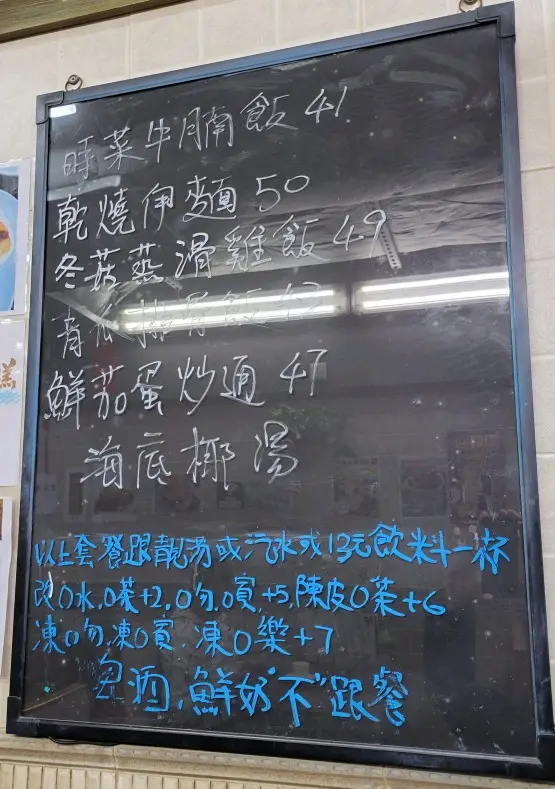 時菜牛腩飯 41
乾燒伊麵 50
冬菇蒸滑雞飯 49
青瓜排骨飯 42
鮮茄蛋炒通 47
海底椰湯
以上套餐跟靚湯或汽水或13元飲料一杯
改0水,0茶+2,0勿,0賓,+5,陳皮0茶+6
凍0勿,凍0賓,凍0樂+7
啤酒,鮮奶"不"跟餐